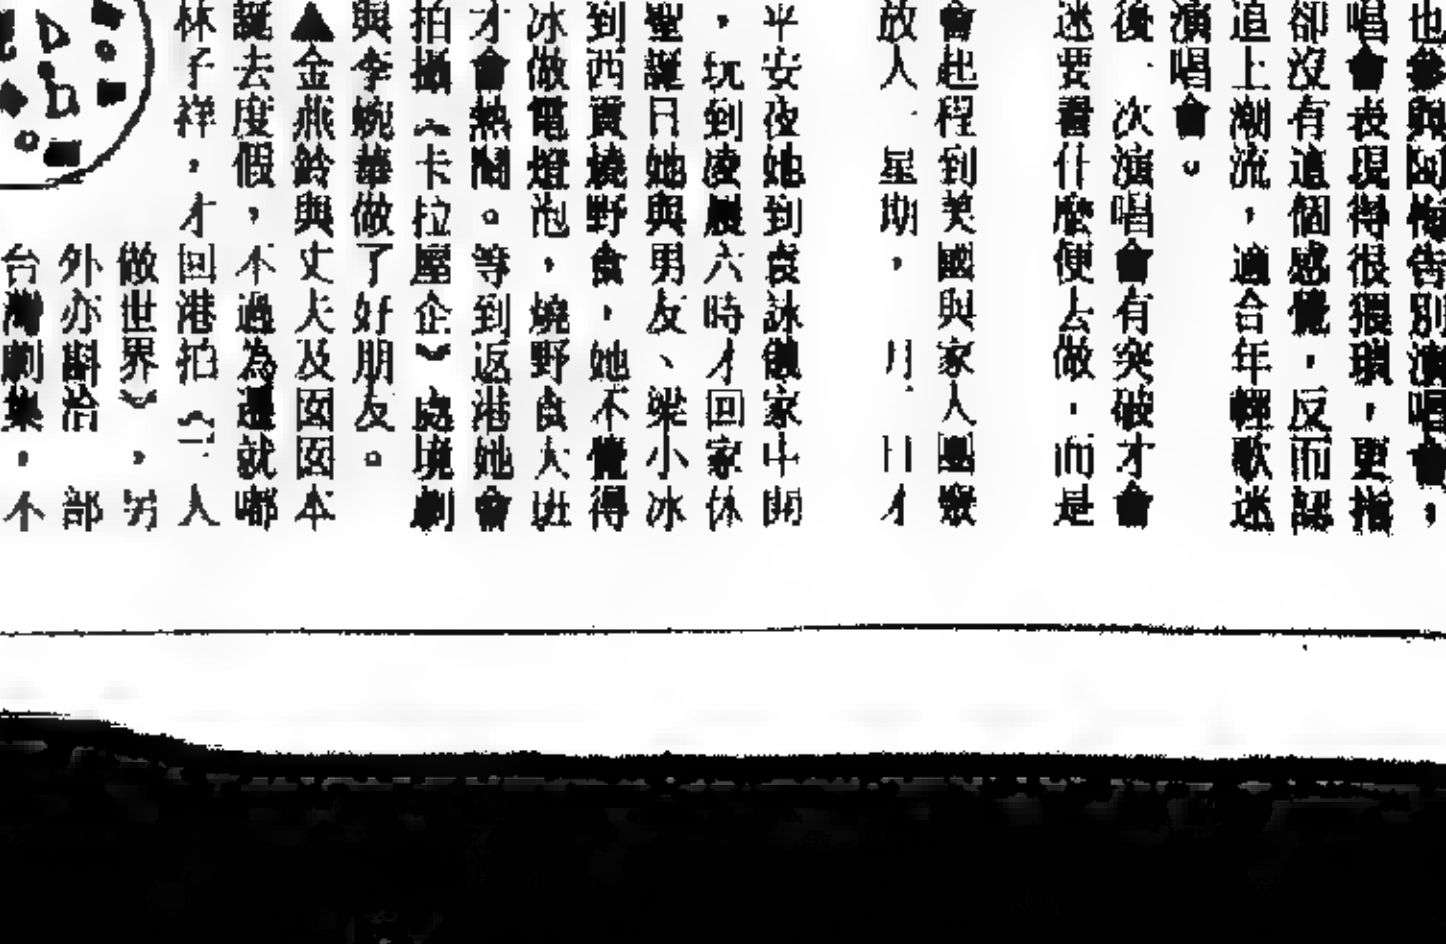 也參與阿梅告別演唱會，
唱會表現得很猥瑣，更指
卻沒有這個感覺，反而認
追上潮流，適合年輕歌迷
演唱會。
後一次演唱會有突破才會
迷要看什麼便去做，而是
會起程到美國與家人團聚
放人一星期， 月 日才
平安夜她到袁詠儀家中開
，玩到凌晨六時才回家休
聖誕日她與男友、梁小冰
到西貢燒野食，她不覺得
冰做電燈泡，燒野食人班
才會熱鬧。等到返港她會
拍攝《卡拉屋企》處境劇
與李婉華做了好朋友。
▲金燕鈴與丈夫及囡囡本
誕去度假，不過為遷就嘟
林子祥，才回港拍《一人
做世界》，另
外亦斟洽 部
台灣劇集，不